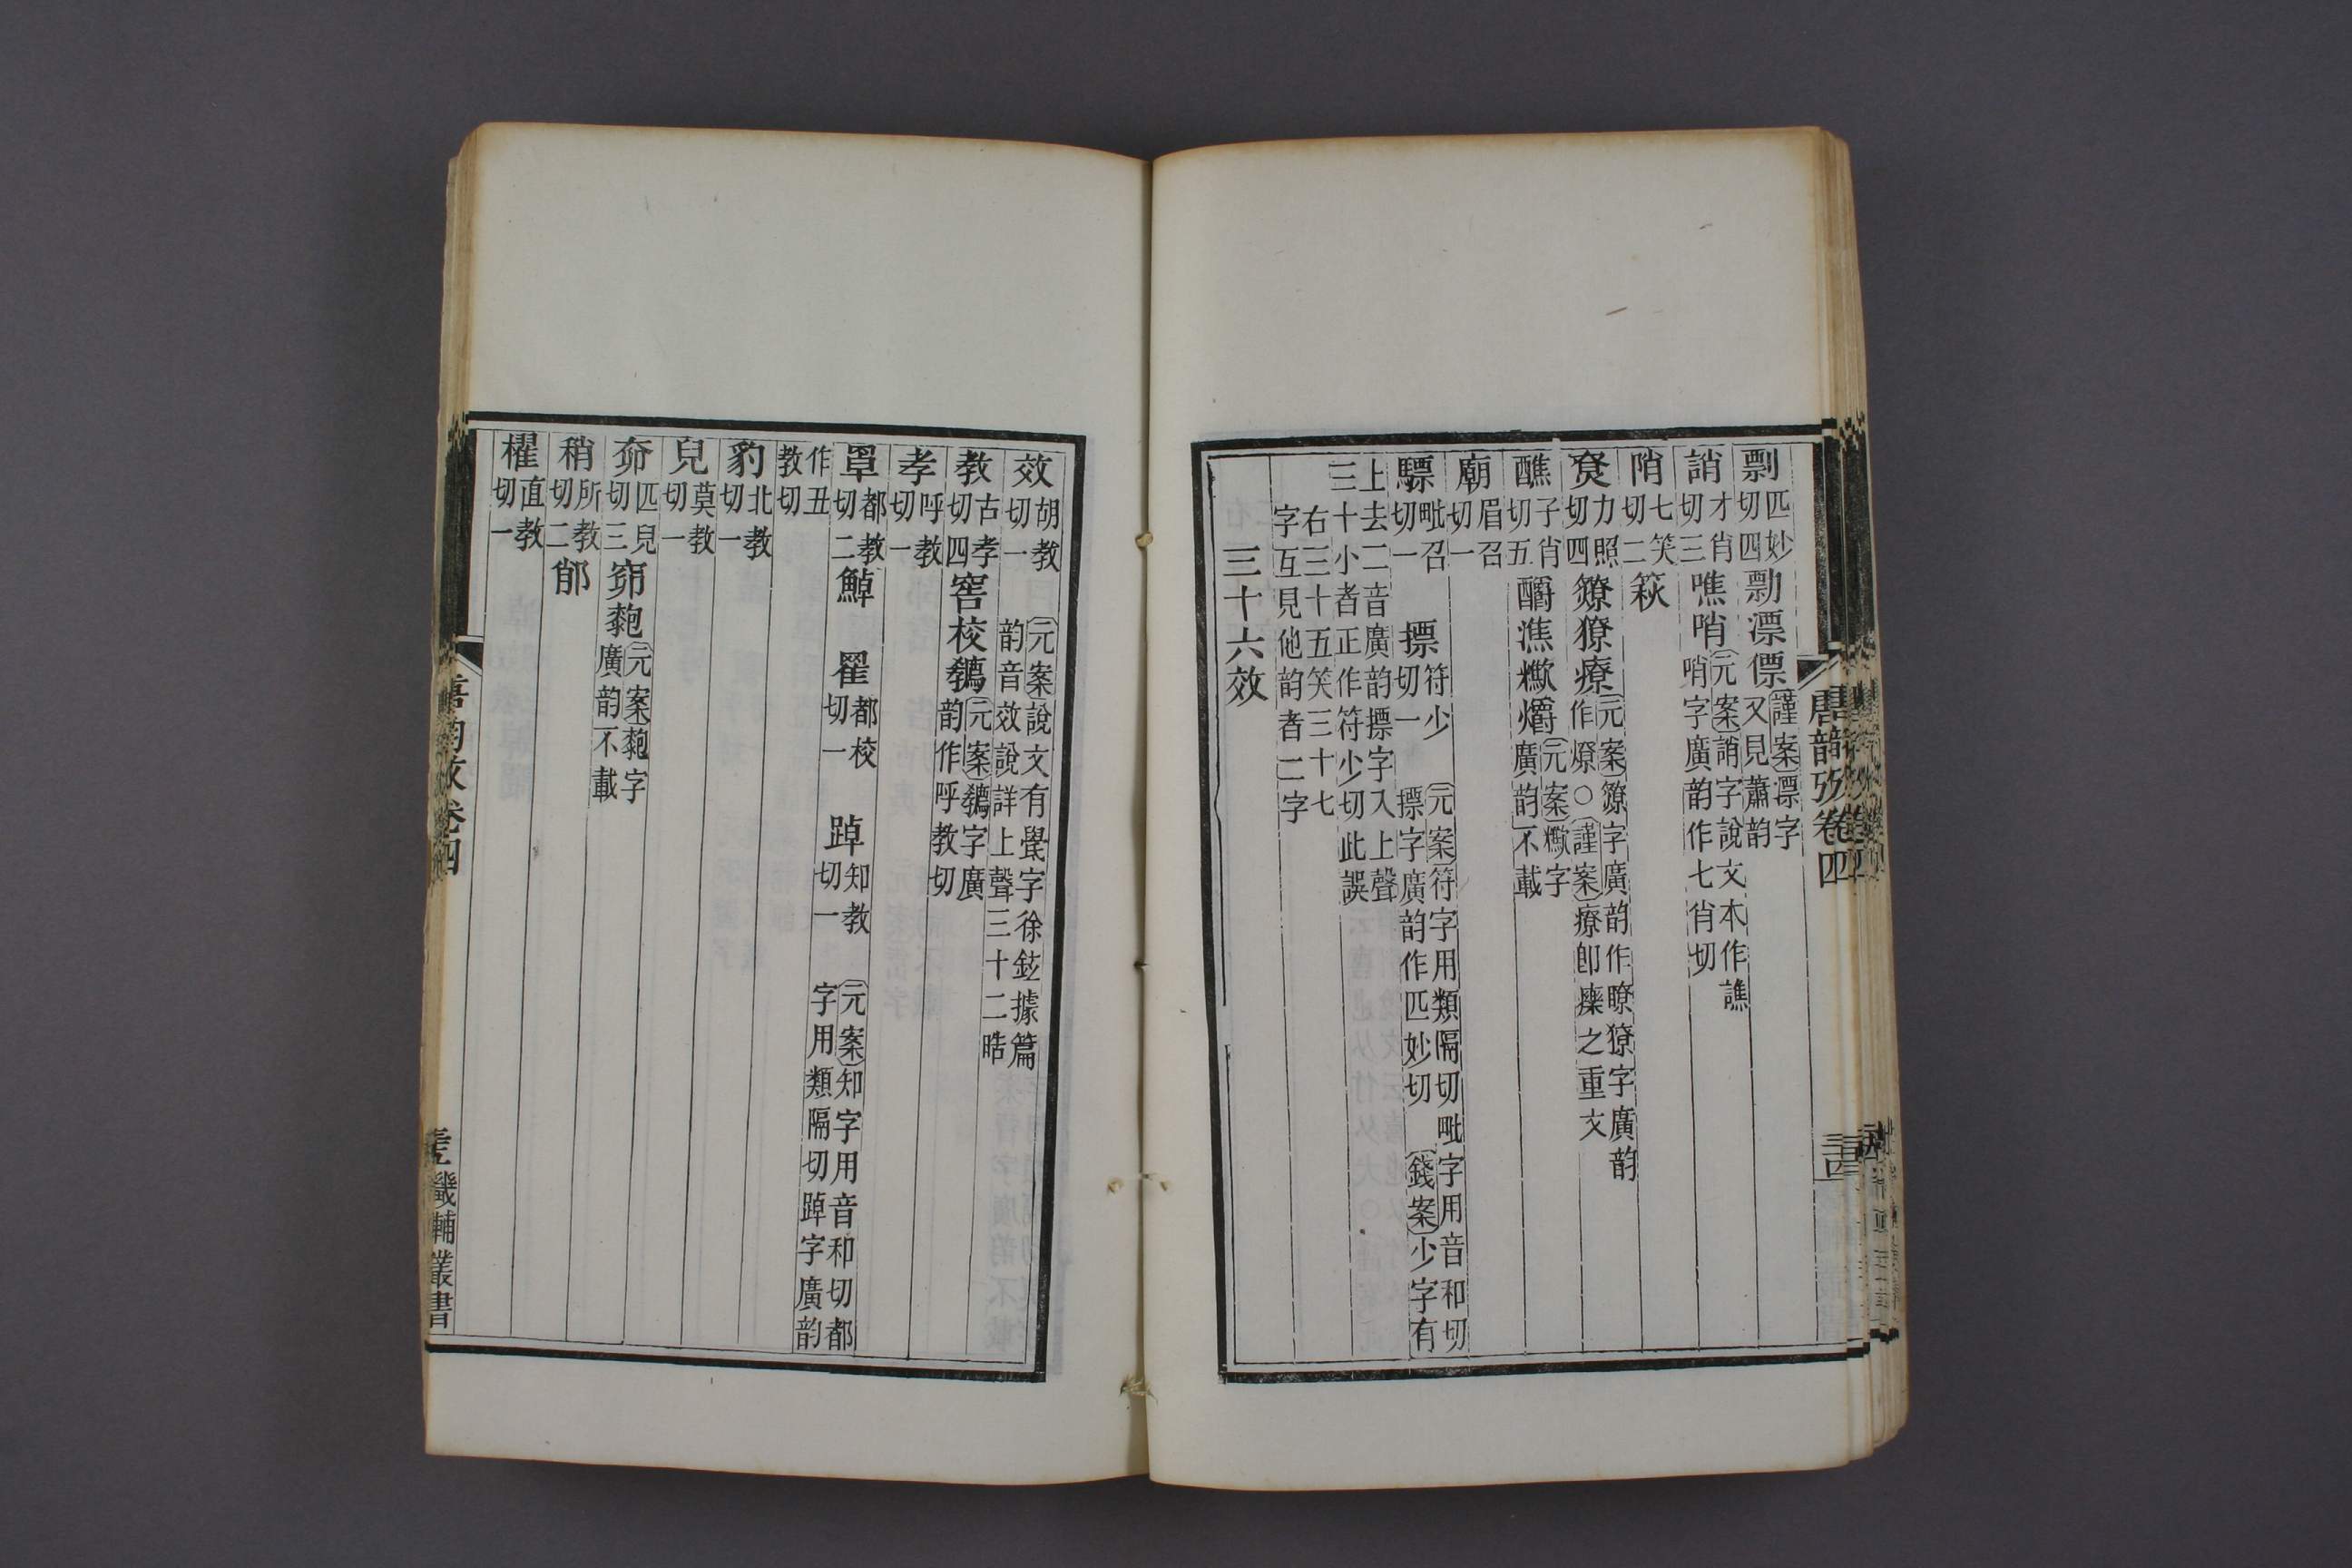 剽匹妙切四勡漂僄謹案漂字又見蕭韵
誚才肖切三噍哨元案誚字說文本作譙哨字廣韵作七肖切
陗七笑切二篍
尞力照切四䉼獠療元案䉼字廣韵作瞭獠字廣韵作燎○謹案療卽𤻲之重文
醮子肖切五釂潐𣤶爝元案𣤶字廣韵不載
廟眉召切一
驃毗召切一 摽符少切一 元案符字用類隔切毗字用音和切摽字廣韵作匹妙切 錢案少字有
上去二音廣韵摽字入上聲三十小者正作符少切此誤
右三十五笑三十七字互見他韵者二字
三十六效
唐韻攷卷四
效胡教切一 元案說文有斆字徐鉉據篇韵音效說詳上聲三十二晧
教古孝切四窖校䴂元案䴂字廣韵作呼教切
孝呼教切一
罩都教切二鯙 䍜都校切一 踔知教切一 元案知字用音和切都字用類隔切踔字廣韵
作丑教切
豹北教切一
皃莫教切一
奅匹皃切三窌麭元案麭字廣韵不載
稍所教切二郋
櫂直教切一
唐韵攷卷四
畿輔叢書